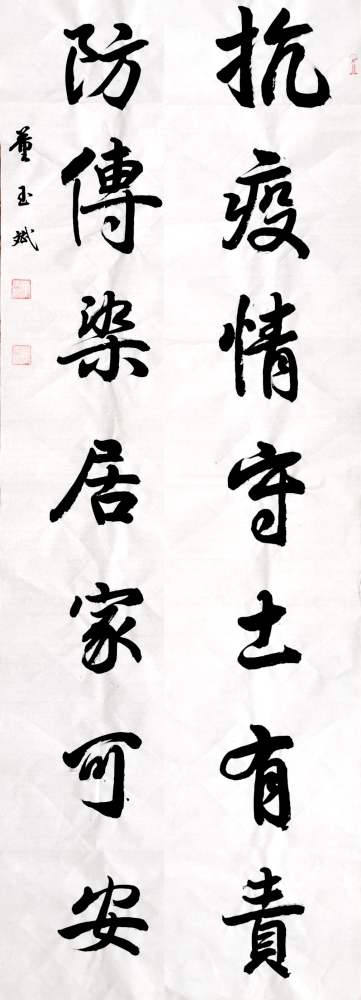 抗疫情守土有責
防傳染居家可安
董玉斌